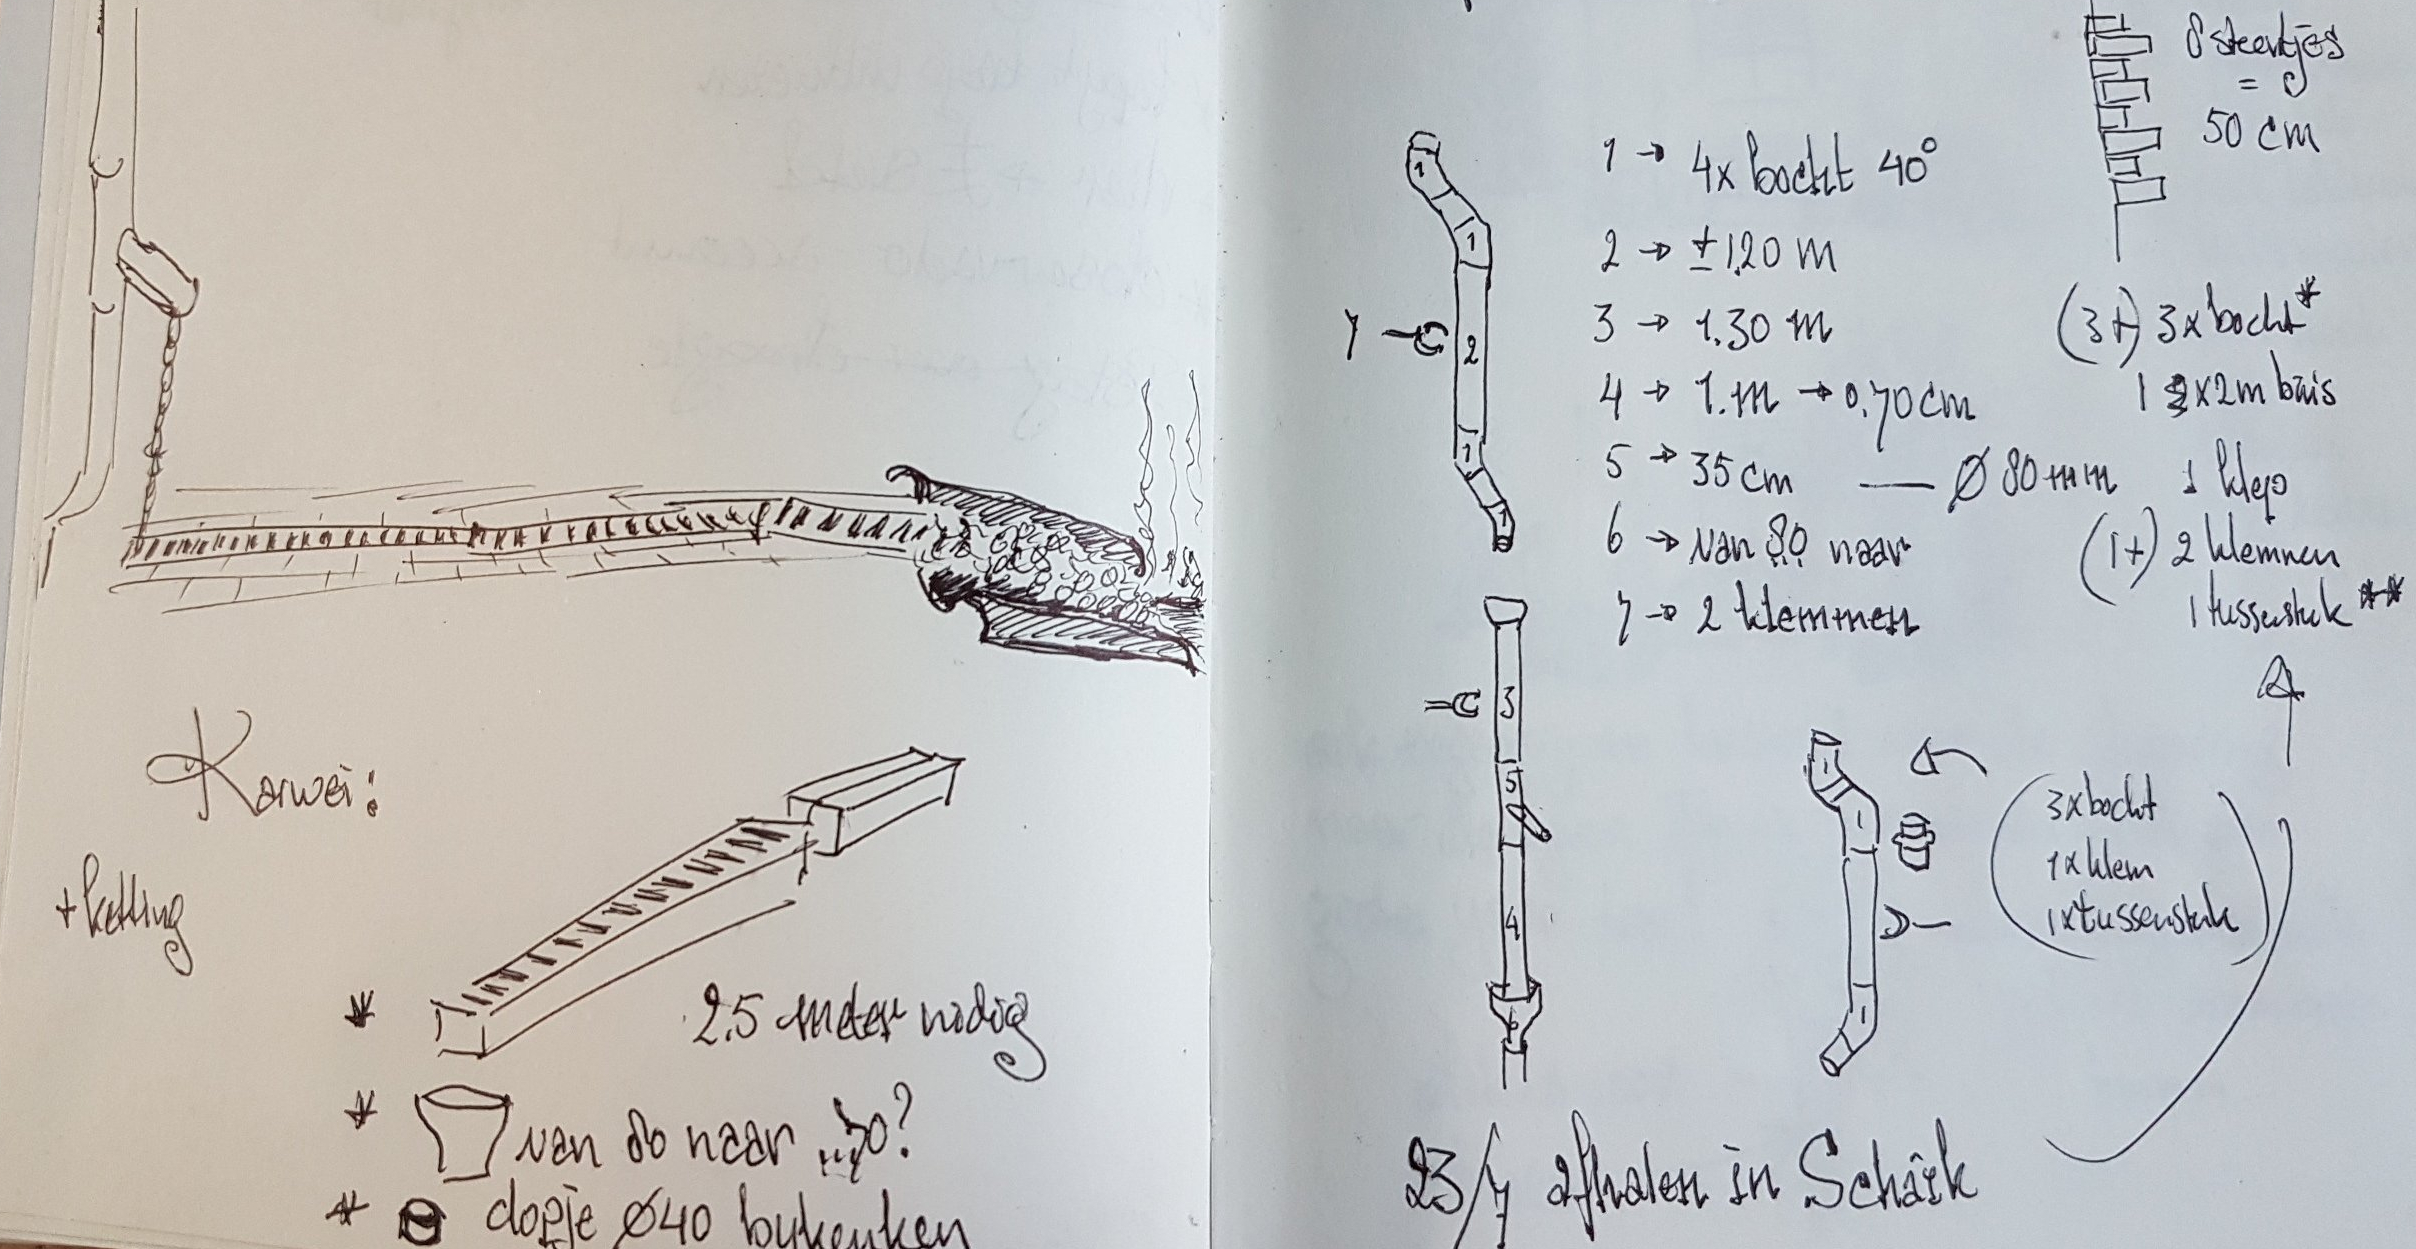 Karwei:
+ ketting
* 2.5 meter nodig
* van 80 naar ...70?
* dopje Ø40 bykeuken
8 steentjes
=
50 cm
1 → 4x bocht 40°
2 → ± 1.20 m
3 → 1.30 m
4 → 1.m → 0.70 cm
5 → 35 cm — Ø 80 mm
6 → van 80 naar
7 → 2 klemmen
1
1
7
2
1
1
3
5
4
6
(3+) 3x bocht*
1 x 2m buis
1 klep
(1+) 2 klemmen
1 tussenstuk **
1
1
1
3x bocht
1x klem
1x tussenstuk
23/7 afhalen in Schaik